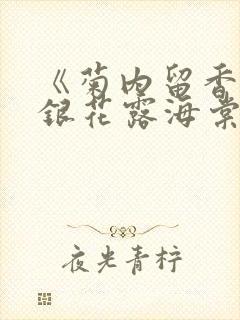 《菊内留香
銀花露海棠
夜光青柠